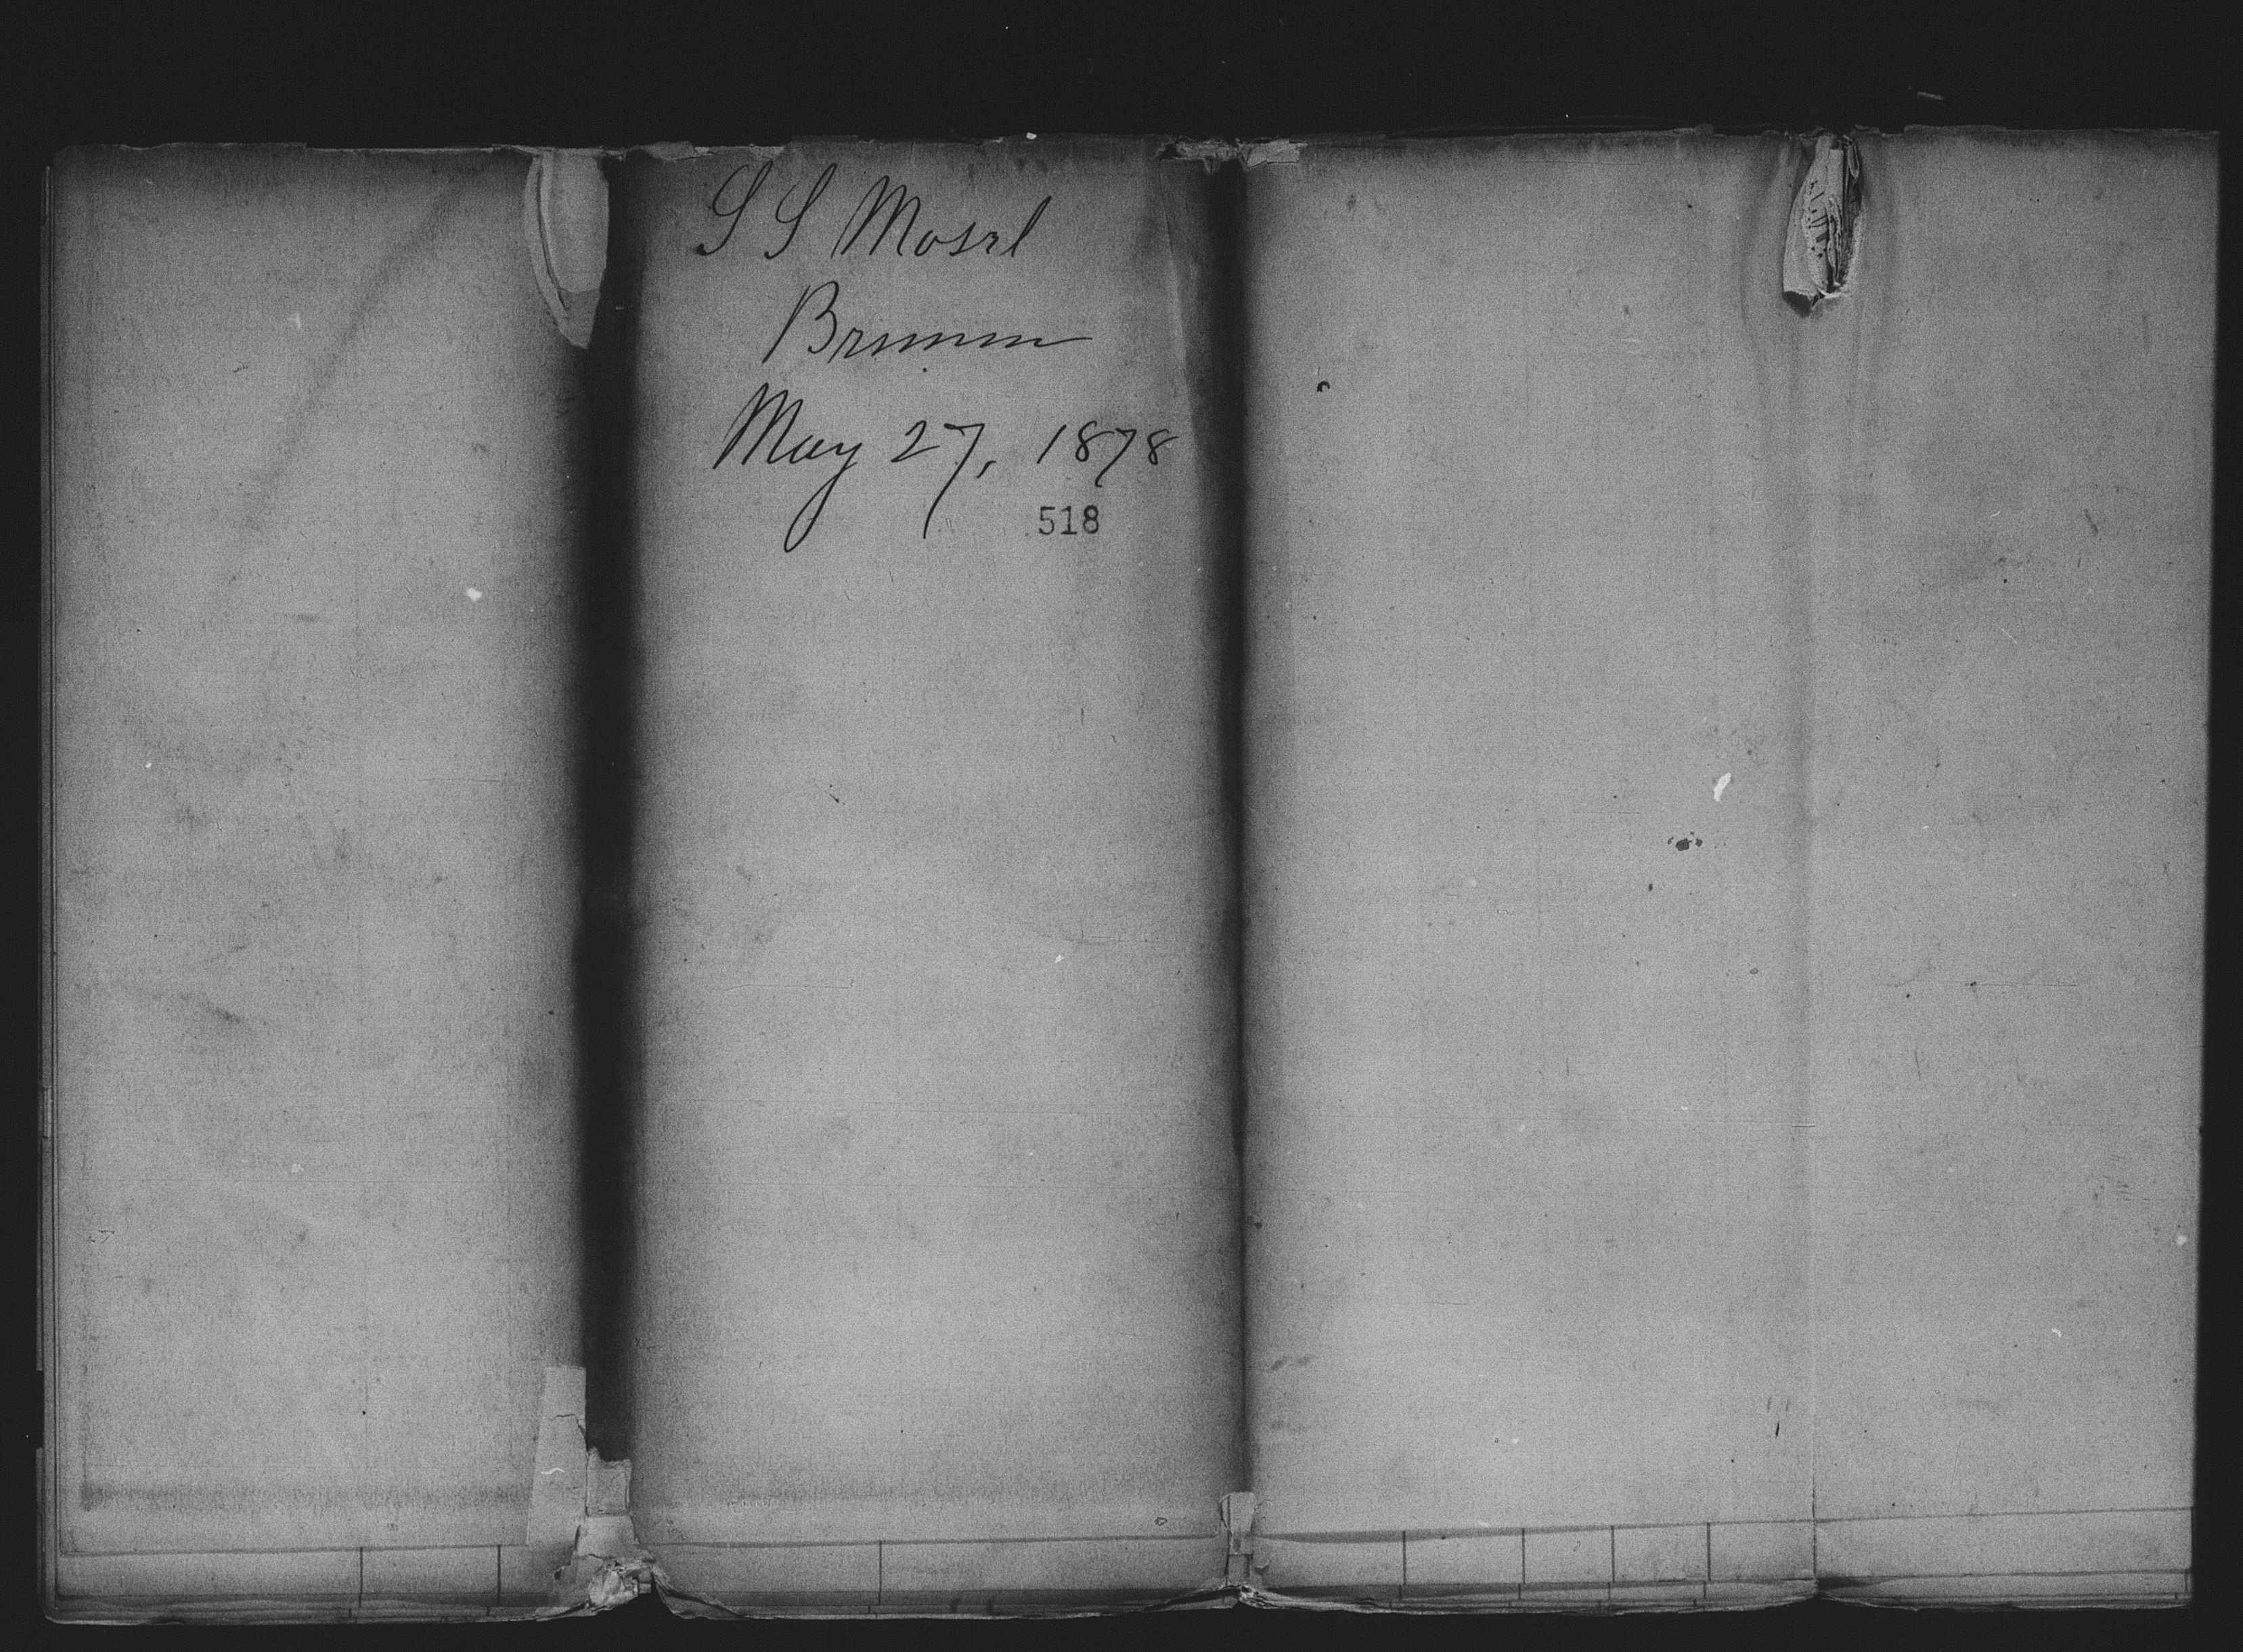 S S Mosel
Bremen
May 27, 1878
518